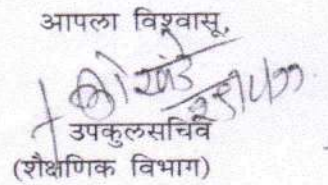 आपला विश्वासू,
उपकुलसचिव
(शैक्षणिक विभाग)